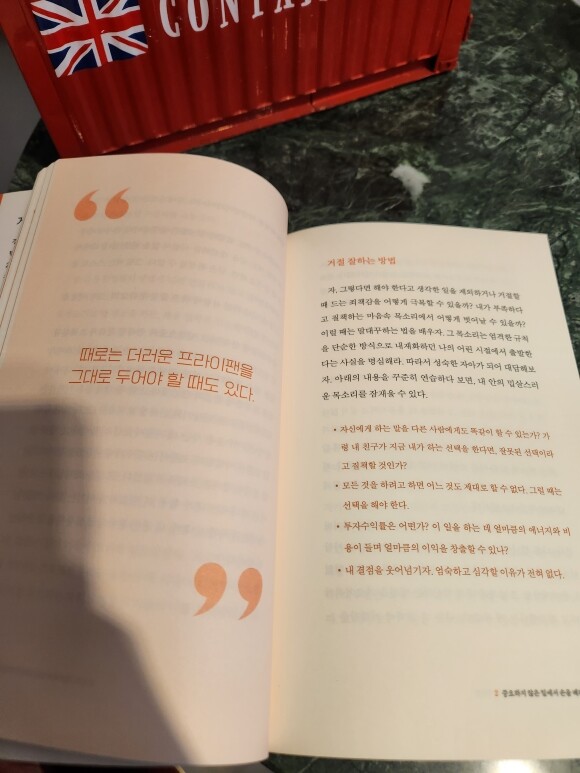 CONTA
때로는 더러운 프라이팬을
그대로 두어야 할 때도 있다.
거절 잘하는 방법
자, 그렇다면 해야 한다고 생각한 일을 제외하거나 거절할
때 드는 죄책감을 어떻게 극복할 수 있을까? 내가 부족하다
고 질책하는 마음속 목소리에서 어떻게 벗어날 수 있을까?
이럴 때는 말대꾸하는 법을 배우자. 그 목소리는 엄격한 규칙
을 단순한 방식으로 내재화하던 나의 어린 시절에서 출발한
다는 사실을 명심해라. 따라서 성숙한 자아가 되어 대답해보
자. 아래의 내용을 꾸준히 연습하다 보면, 내 안의 밉살스러
운 목소리를 잠재울 수 있다.
• 자신에게 하는 말을 다른 사람에게도 똑같이 할 수 있는가? 가
령 내 친구가 지금 내가 하는 선택을 한다면, 잘못된 선택이라
고 질책할 것인가?
• 모든 것을 하려고 하면 어느 것도 제대로 할 수 없다. 그럴 때는
선택을 해야 한다.
• 투자수익률은 어떤가? 이 일을 하는 데 얼마큼의 에너지와 비
용이 들며 얼마큼의 이익을 창출할 수 있나?
• 내 결점을 웃어넘기자. 엄숙하고 심각할 이유가 전혀 없다.
2 중요하지 않은 일에서 손을 떼